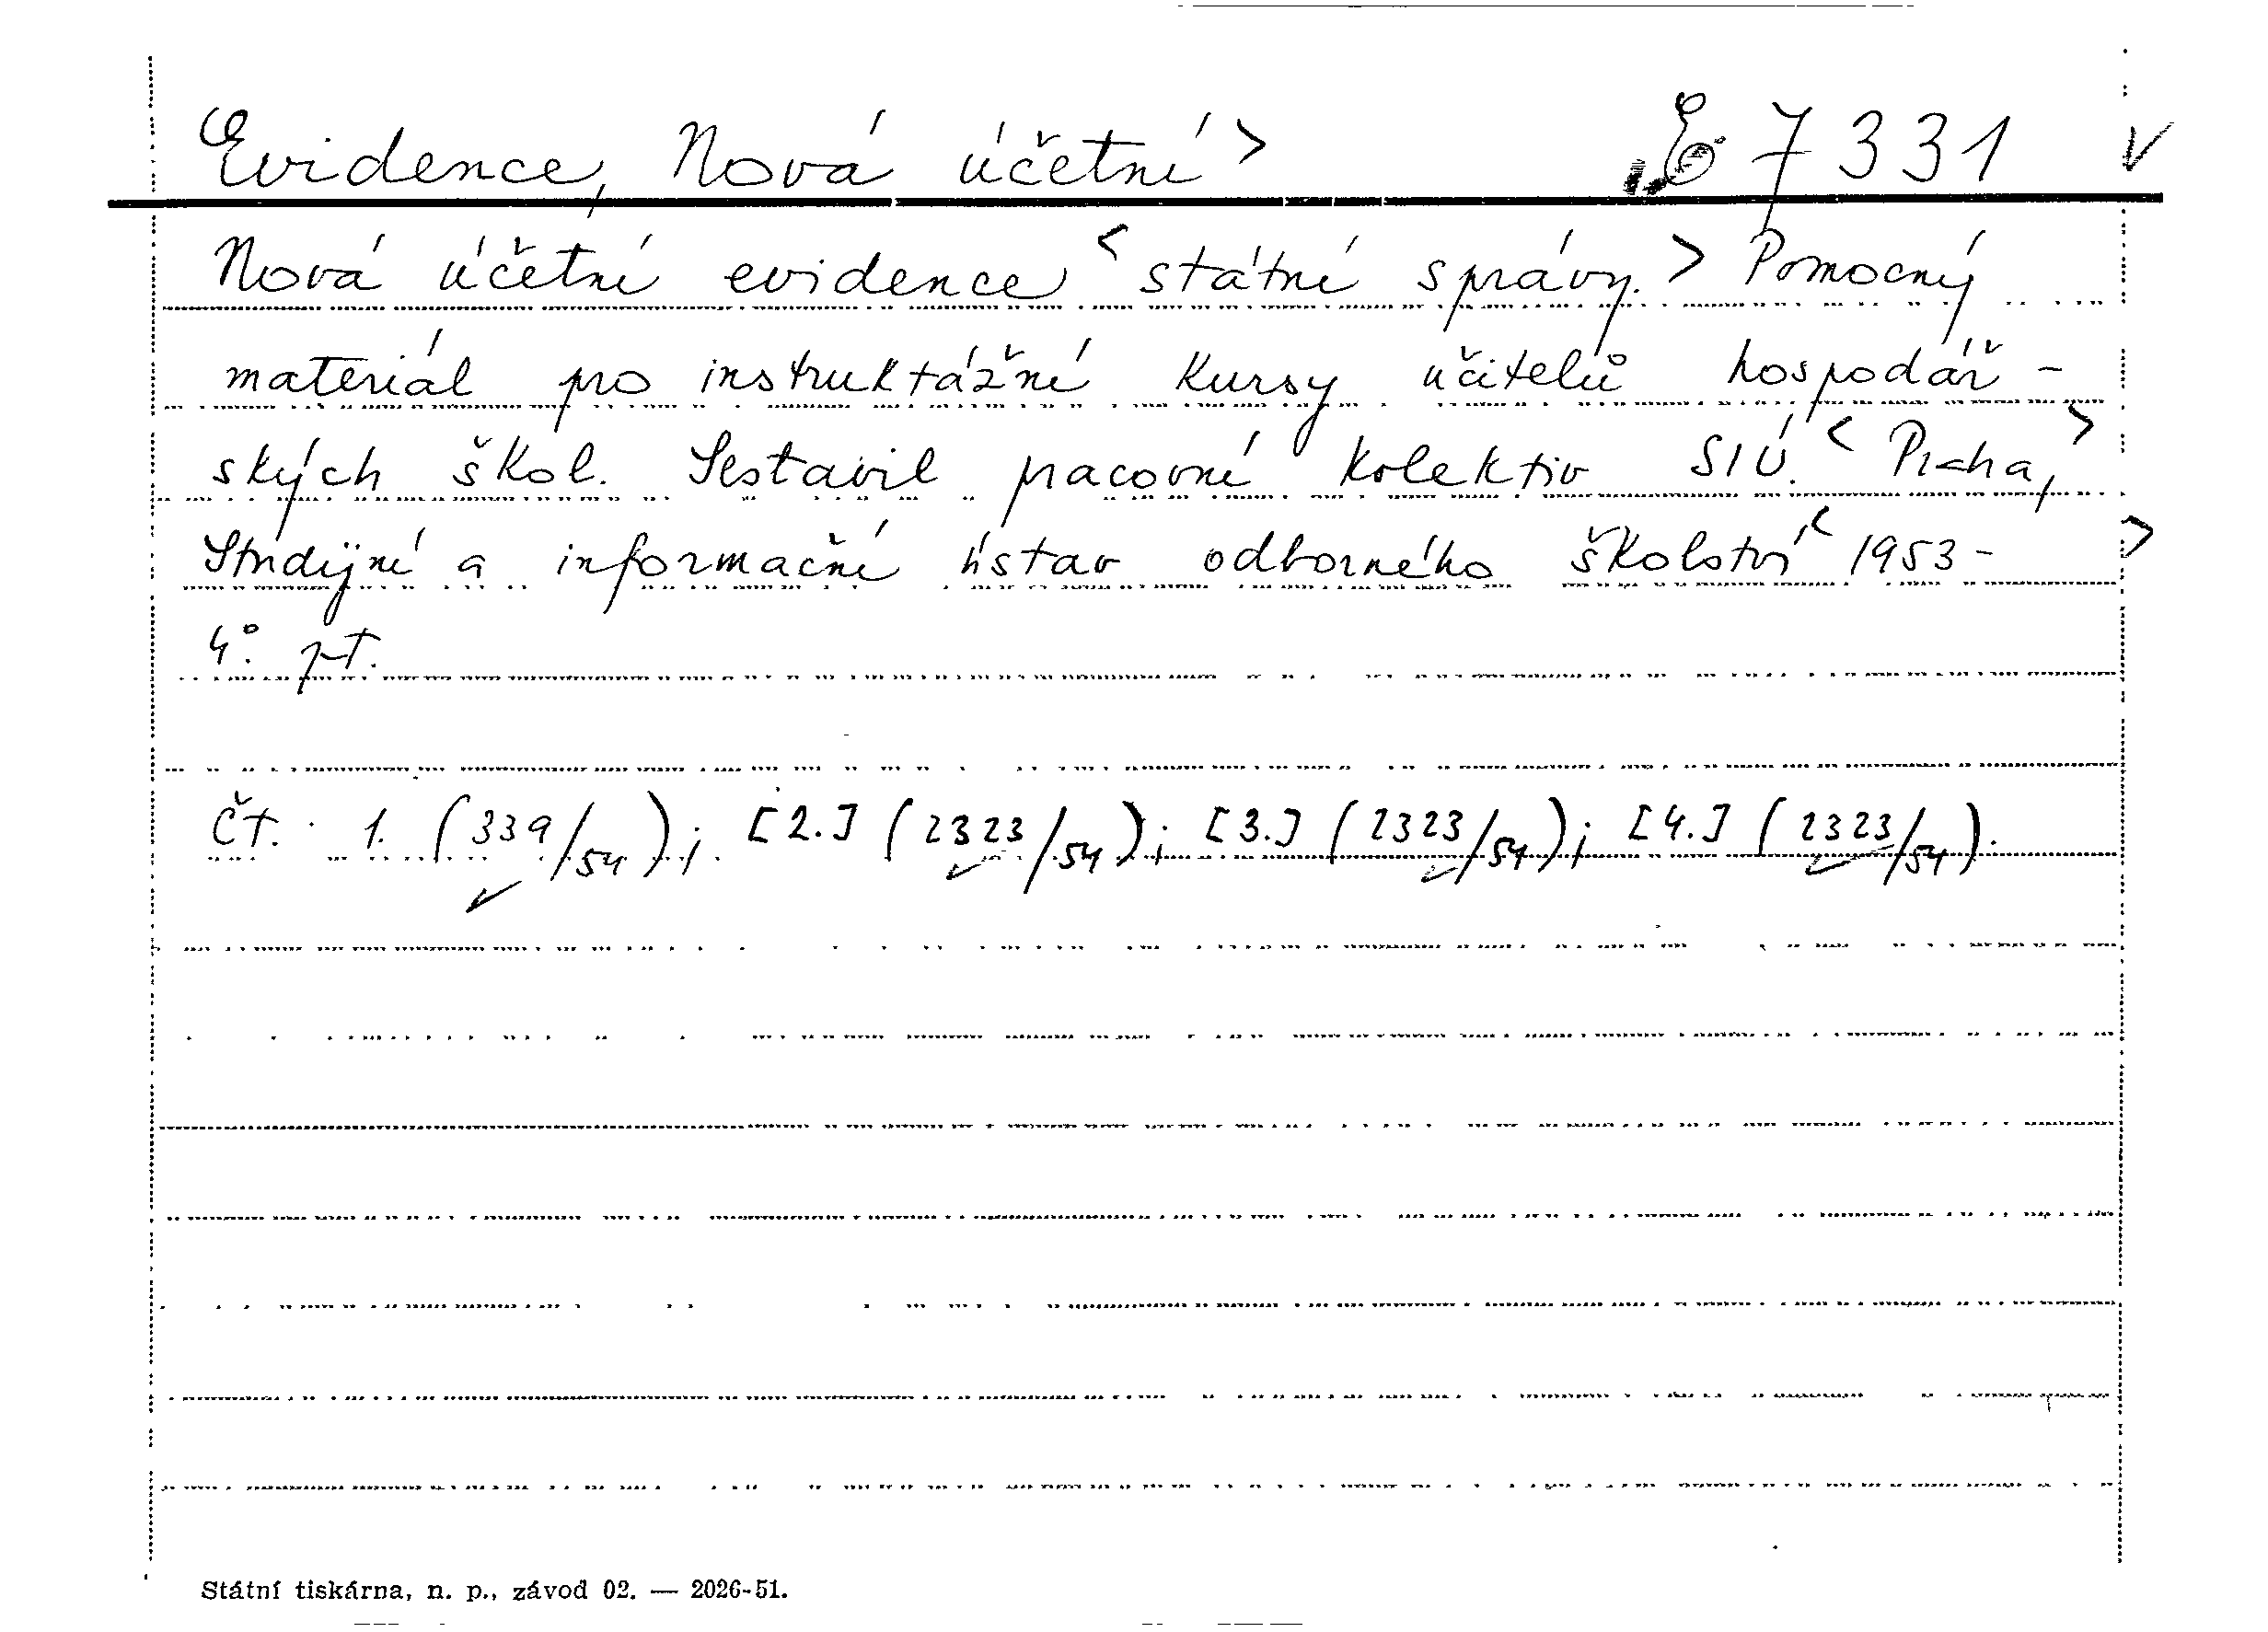 Evidence, Nová účetní > E 7331 v
Nová účetní evidence < státní správy. > Pomocný
materiál pro instruktážní kursy učitelů hospodář-
ských škol. Sestavil pracovní kolektiv SIÚ. < Praha, >
Studijní a informační ústav odborného školství < 1953- >
4°. pt.
čt. 1. (339/54); [2.] (2323/54); [3.] (2323/54); [4.] (2323/54).
Státní tiskárna, n. p., závod 02. — 2026-51.